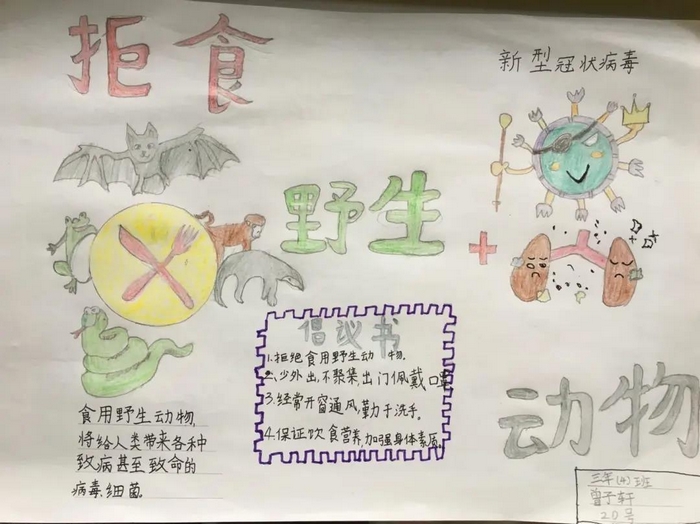 拒食
新型冠状病毒
野生
倡议书
1.拒绝食用野生动物.
2.少外出,不聚集出门佩戴口罩
3.经常开窗通风,勤于洗手.
4.保证饮食营养,加强身体素质.
食用野生动物,
将给人类带来各种
致病甚至致命的
病毒、细菌.
动物
三年(4)班
曾子轩
20号